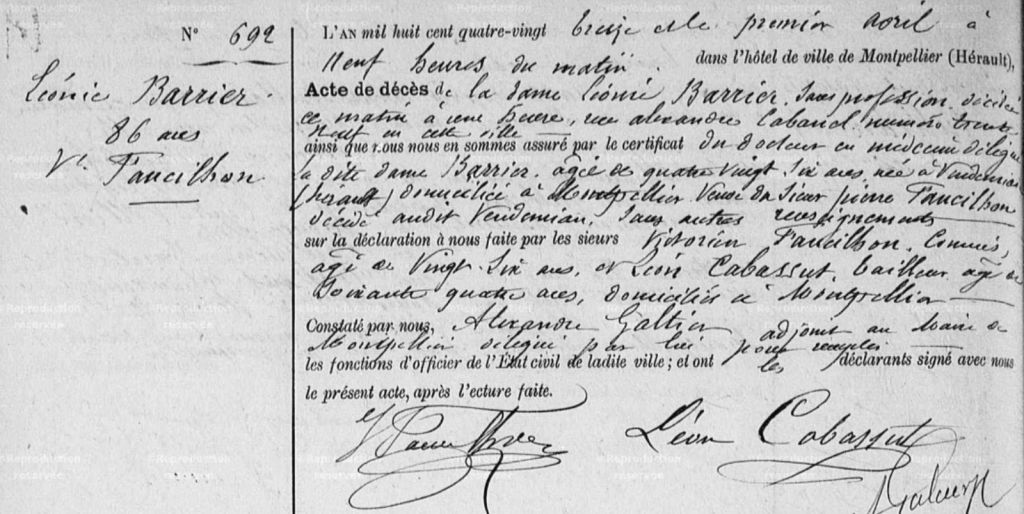 N° 692
Léonie Barrier.
86 ans
Vve Faucilhon
L'AN mil huit cent quatre-vingt treize et le premier avril à
neuf heures du matin. dans l'hôtel de ville de Montpellier (Hérault),
Acte de décès de la dame Léonie Barrier, sans profession, décédée
ce matin à une heure, rue alexandre Cabanel numéro trente
neuf en cette ville
ainsi que nous nous en sommes assuré par le certificat du Docteur en médecin délégué
la dite dame Barrier, agée de quatre vingt six ans, née à Vendémian
(hérault) domiciliée à Montpellier Veuve du Sieur pierre Faucilhon
décédé audit Vendémian, sans autres renseignements
sur la déclaration à nous faite par les sieurs Victorien Faucilhon, Commis,
agé de vingt six ans, et Léon Cabassut, tailleur, agé de
soixante quatre ans, domiciliés à Montpellier
Constaté par nous, Alexandre Galtier adjoint au Maire de
Montpellier délégué par lui pour remplir
les fonctions d'officier de l'État civil de ladite ville; et ont les déclarants signé avec nous
le présent acte, après lecture faite.
Léon Cabassut